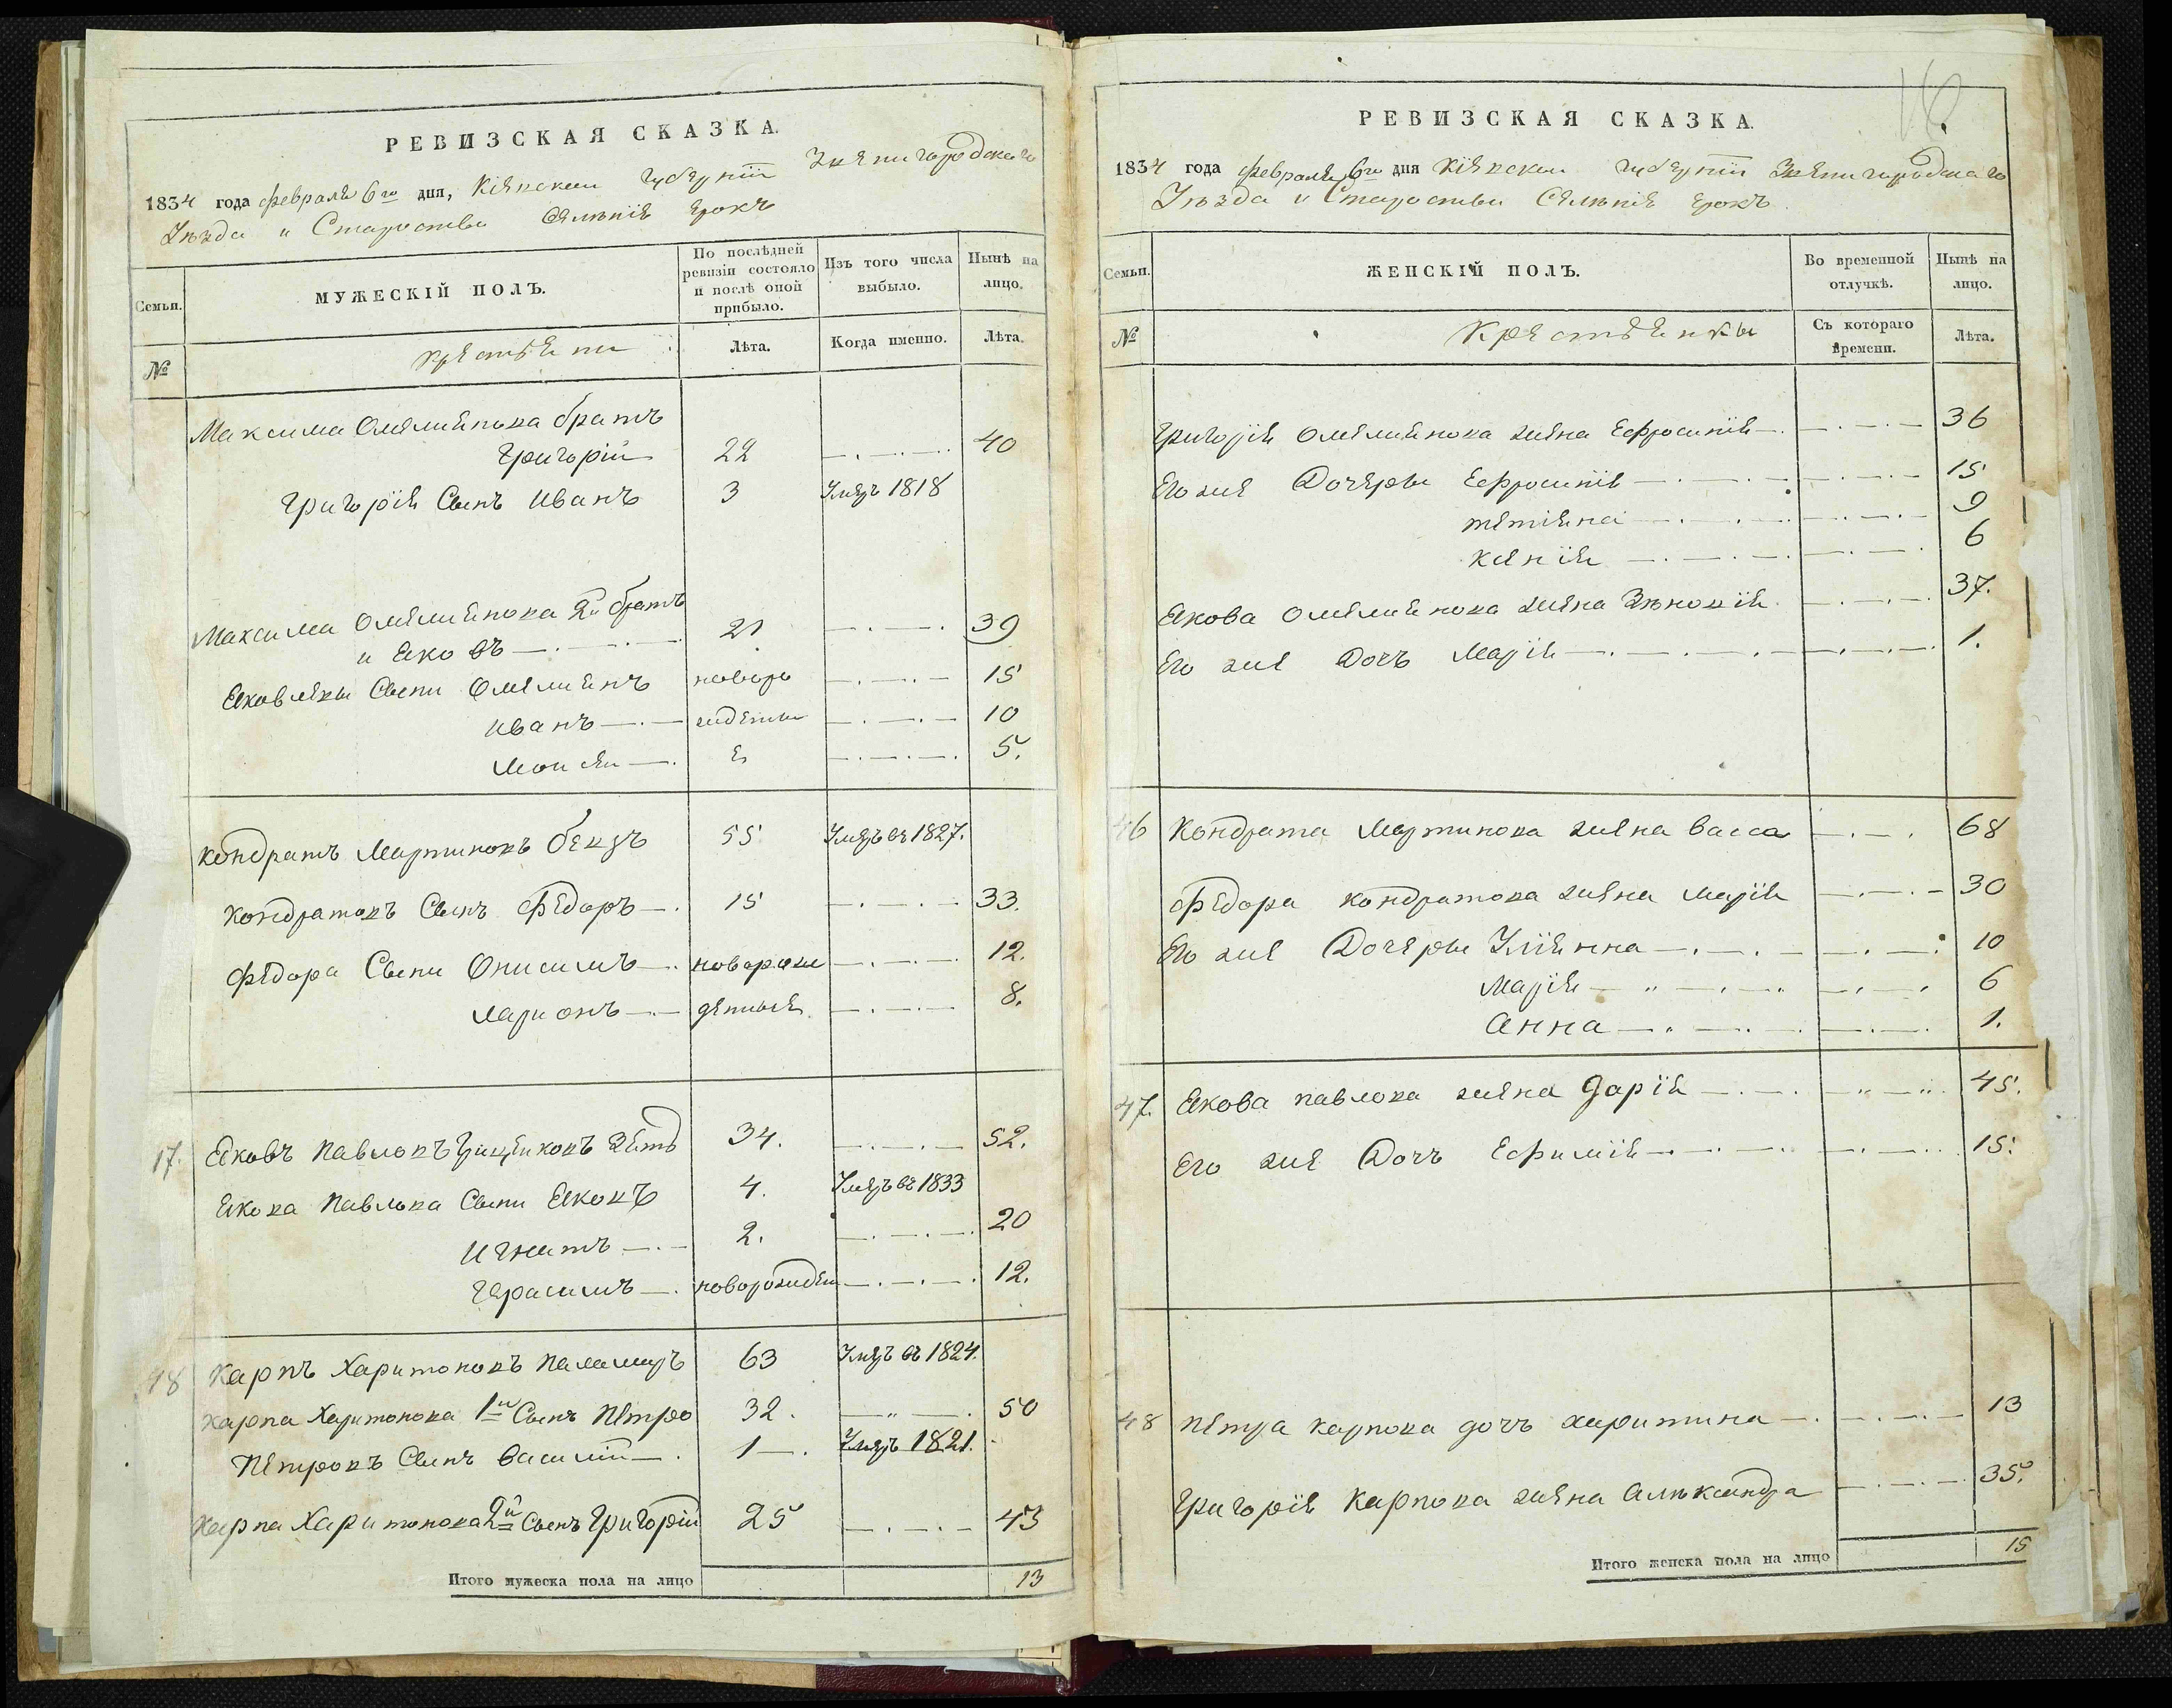 РЕВИЗСКАЯ СКАЗКА.
1834 года февраля 6го дня, Кіевской губерніи Звенигородскаго
Уѣзда и Староства Селѣнія Ерокъ
Семьи.
МУЖЕСКІЙ ПОЛЪ.
По послѣдней ревизіи состояло и послѣ оной прибыло.
Изъ того числа выбыло.
Нынѣ на лицо.
№
Крестьяни
Лѣта.
Когда именно.
Лѣта.
Максима Омелиянова братъ
Григорій 22 40
Григорія Сынъ Иванъ 3 Умеръ 1818
Максима Омелиянова 2й братъ
и Яковъ 21 39
Яковлевы Сыни Омелиянъ новоро 15
Иванъ жденны 10
Моисей е 5.
Кондратъ Мартиновъ 55 Умеръ въ 1827.
Кондратовъ Сынъ Федоръ 15 33.
Федора Сыни Онисимъ новорож 12.
Ларионъ денные 8.
17. Яковъ Павловъ Грищенковъ Зять 34. 52.
Якова Павлова Сыни Яковъ 4. Умеръ въ 1833
Игнатъ 2. 20
Герасимъ новорожден 12.
48 Карпъ Харитоновъ Паламаръ 63 Умеръ въ 1824.
Карпа Харитонова 1й Сынъ Петро 32. 50
Петровъ Сынъ Василій 1 Умеръ 1821.
Карпа Харитонова 2й Сынъ Григорій 25 43
Итого мужеска пола на лицо 13
16
РЕВИЗСКАЯ СКАЗКА.
1834 года февраля 6го дня Кіевской губерніи Звенигородскаго
Уѣзда и Староства Селѣнія Ерокъ
Семьи.
ЖЕНСКІЙ ПОЛЪ.
Во временной отлучкѣ.
Нынѣ на лицо.
№
Крестьянки
Съ котораго времени.
Лѣта.
Григорія Омелиянова жена Ефросинія 36
Его же Дочеры Ефросинія 15
тетіяна 9
Ксенія 6
Якова Омелиянова жена Зѣновія 37.
Его же Дочъ Марія 1.
46 Кондрата Мартинова жена Васса 68
Федора Кондратова жена Марія 30
Его же Дочеры Уліянна 10
Марія 6
Анна 1.
47. Якова Павлова жена Дарія 45.
Его же Дочъ Ефимія 15.
48 Петра Карпова дочъ Харитина 13
Григорія Карпова жена Алѣксандра 35.
Итого женска пола на лицо 15